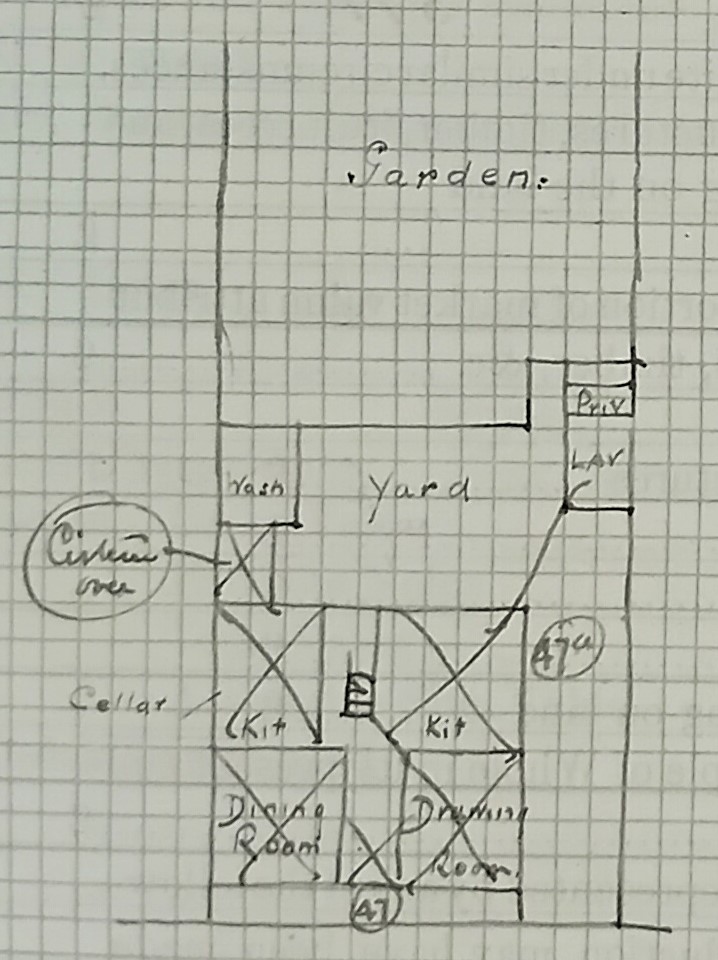 Garden.
Priv
LAV
Wash
Yard
Cistern
over
47a
Cellar
Kit
Kit
Dining
Room
Drawing
Room.
47